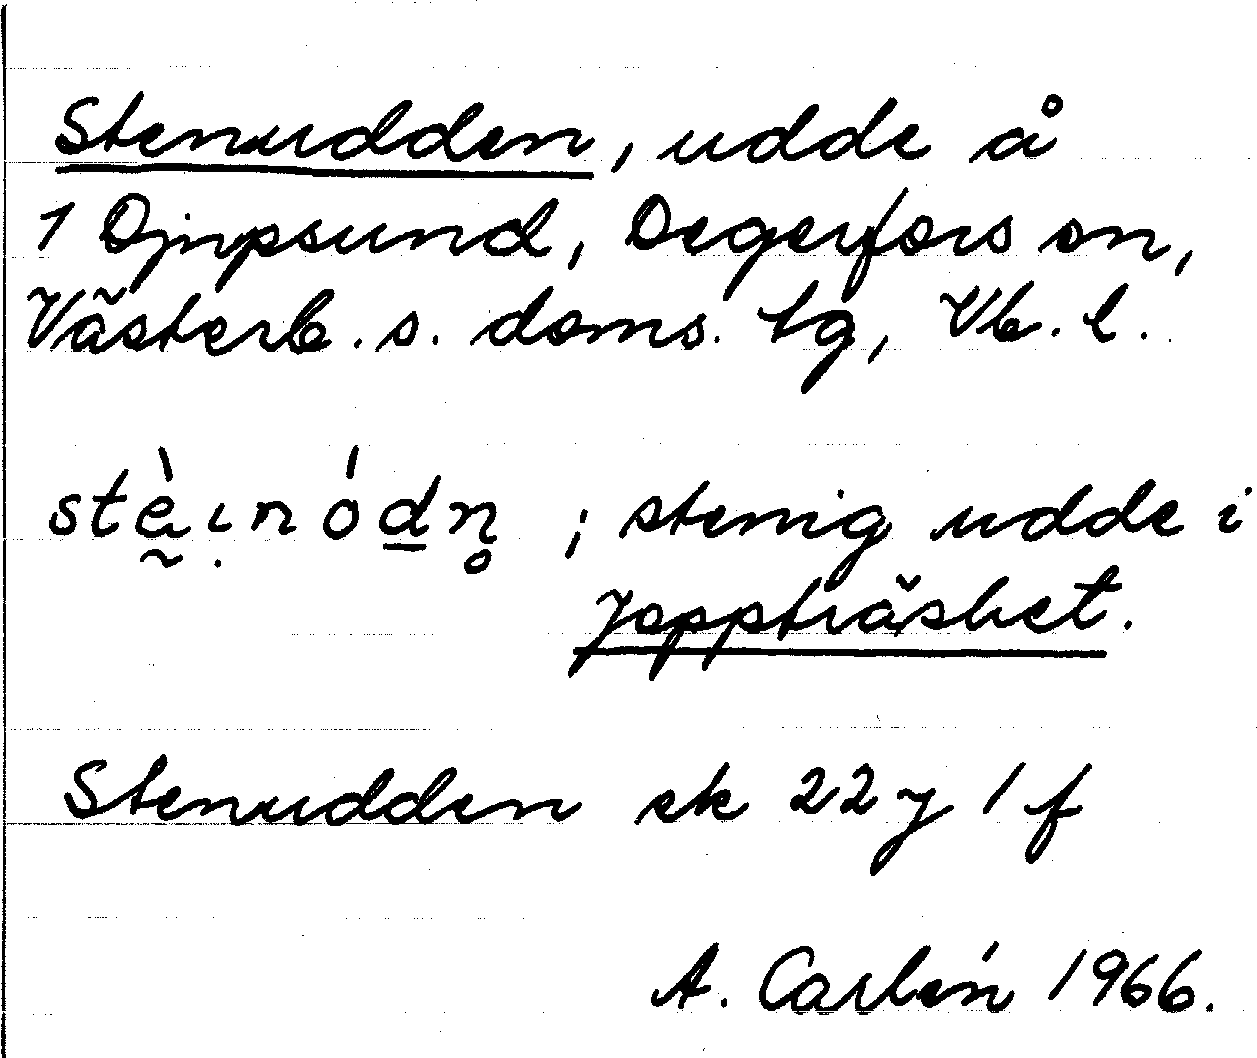 Stenudden, udde å
1 Djupsund, Degerfors sn,
Västerb. s. doms. tg, Vb. l.
; stenig udde i
Joppträsket.
Stenudden ek 22 J 1 f
A. Carlén 1966.